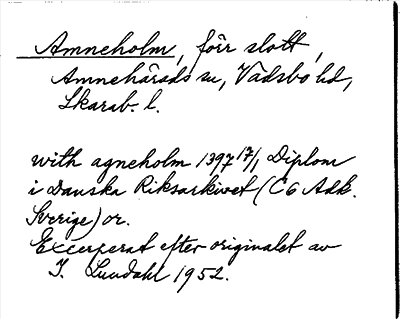 Amneholm, förr slott,
Amnehärads sn, Vadsbo hd,
Skarab. l.
with agneholm 1397 17/1, Diplom
i Danska Riksarkivet (C6 Adk.
Sverige) or.
Excerperat efter originalet av
I. Lundahl 1952.